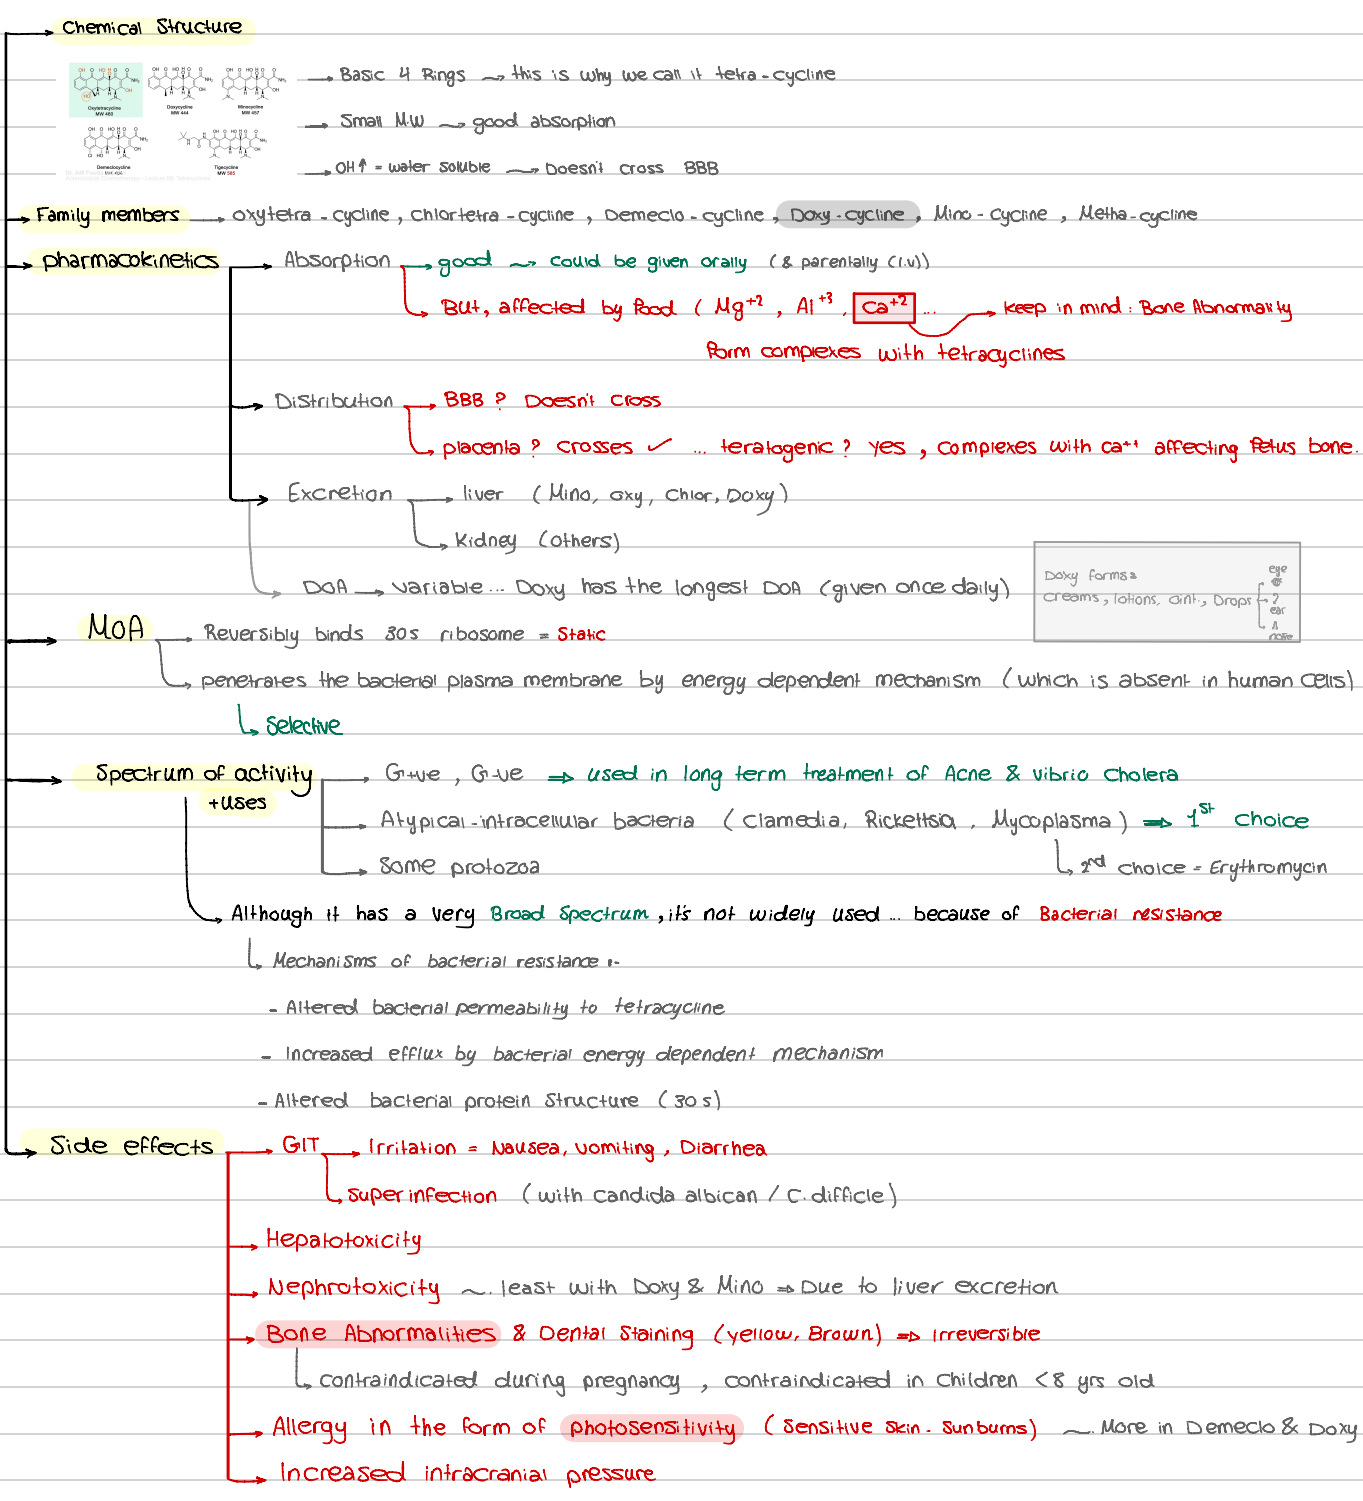 Chemical Structure
Basic 4 Rings → this is why we call it tetra-cycline
Oxytetracycline
MW 460
Doxycycline
MW 444
Minocycline
MW 457
Small M.W → good absorption
Demeclocycline
Tigecycline
MW 585
OH↑ = water soluble → Doesn't cross BBB
Family members → oxytetra-cycline, chlortetra-cycline, Demeclo-cycline, Doxy-cycline, Mino-cycline, Metha-cycline
pharmacokinetics → Absorption → good → could be given orally (& parentally (I.V))
But, affected by food (Mg+2, Al+3, Ca+2 ... → keep in mind: Bone Abnormality
form complexes with tetracyclines
Distribution → BBB? Doesn't cross
placenta? crosses ✓ ... teratogenic? yes, complexes with Ca++ affecting fetus bone.
Excretion → liver (Mino, oxy, chlor, Doxy)
Kidney (others)
DOA → variable... Doxy has the longest DOA (given once daily)
Doxy forms:
creams, lotions, oint., Drops
eye
ear
nose
MOA → Reversibly binds 30s ribosome = Static
penetrates the bacterial plasma membrane by energy dependent mechanism (which is absent in human cells)
Selective
Spectrum of activity → G+ve, G-ve ⇒ used in long term treatment of Acne & vibrio cholera
+uses
Atypical-intracellular bacteria (clamedia, Rickettsia, Mycoplasma) ⇒ 1st choice
Some protozoa
2nd choice = Erythromycin
Although it has a very Broad Spectrum, it's not widely used ... because of Bacterial resistance
Mechanisms of bacterial resistance :-
- Altered bacterial permeability to tetracycline
- Increased efflux by bacterial energy dependent mechanism
- Altered bacterial protein structure (30s)
Side effects → GIT → Irritation = Nausea, vomiting, Diarrhea
superinfection (with candida albican / C.difficle)
Hepatotoxicity
Nephrotoxicity ~ least with Doxy & Mino ⇒ Due to liver excretion
Bone Abnormalities & Dental Staining (yellow, Brown) ⇒ irreversible
contraindicated during pregnancy, contraindicated in children <8 yrs old
Allergy in the form of photosensitivity (sensitive skin - sunburns) ~ More in Demeclo & Doxy
Increased intracranial pressure